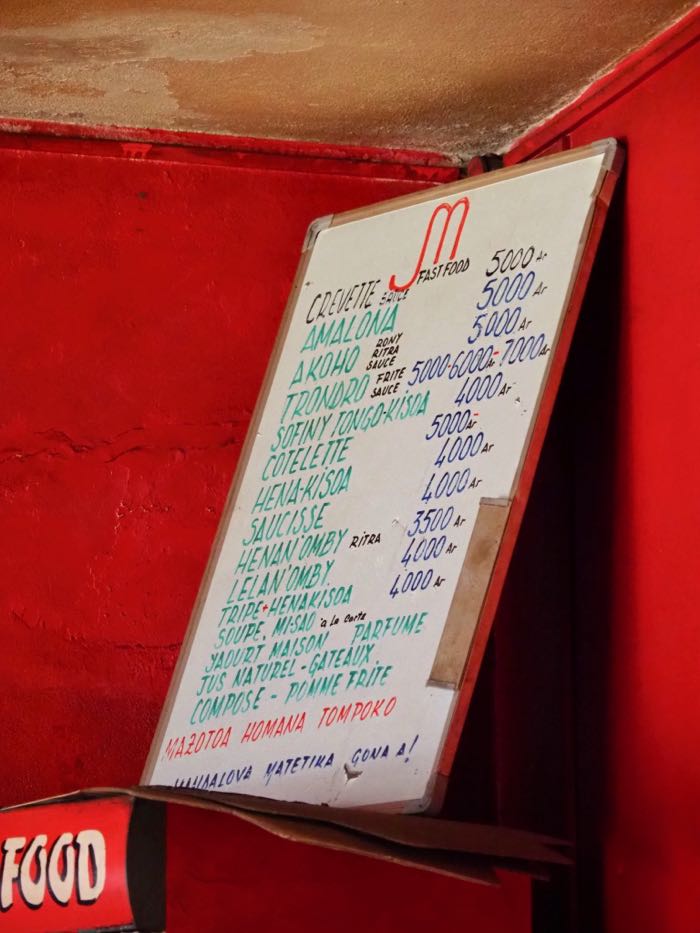 JM
FAST FOOD
CREVETTE SAUCE 5000 Ar
AMALONA 5000 Ar
AKOHO RONY RITRA SAUCE 5000 Ar
TRONDRO FRITE SAUCE 5000-6000Ar-7000Ar
SOFINY TONGO-KISOA 4000 Ar
COTELETTE 5000 Ar
HENA-KISOA 4000 Ar
SAUCISSE 4000 Ar
HENAN'OMBY RITRA 3500 Ar
LELAN'OMBY. 4000 Ar
TRIPE+HENAKISOA 4000 Ar
SOUPE, MI-SAO à La Carte
YAOURT MAISON PARFUME
JUS NATUREL - GATEAUX.
COMPOSE - POMME FRITE
MAZOTOA HOMANA TOMPOKO
MANDALOVA MATETIKA GONA A!
FOOD